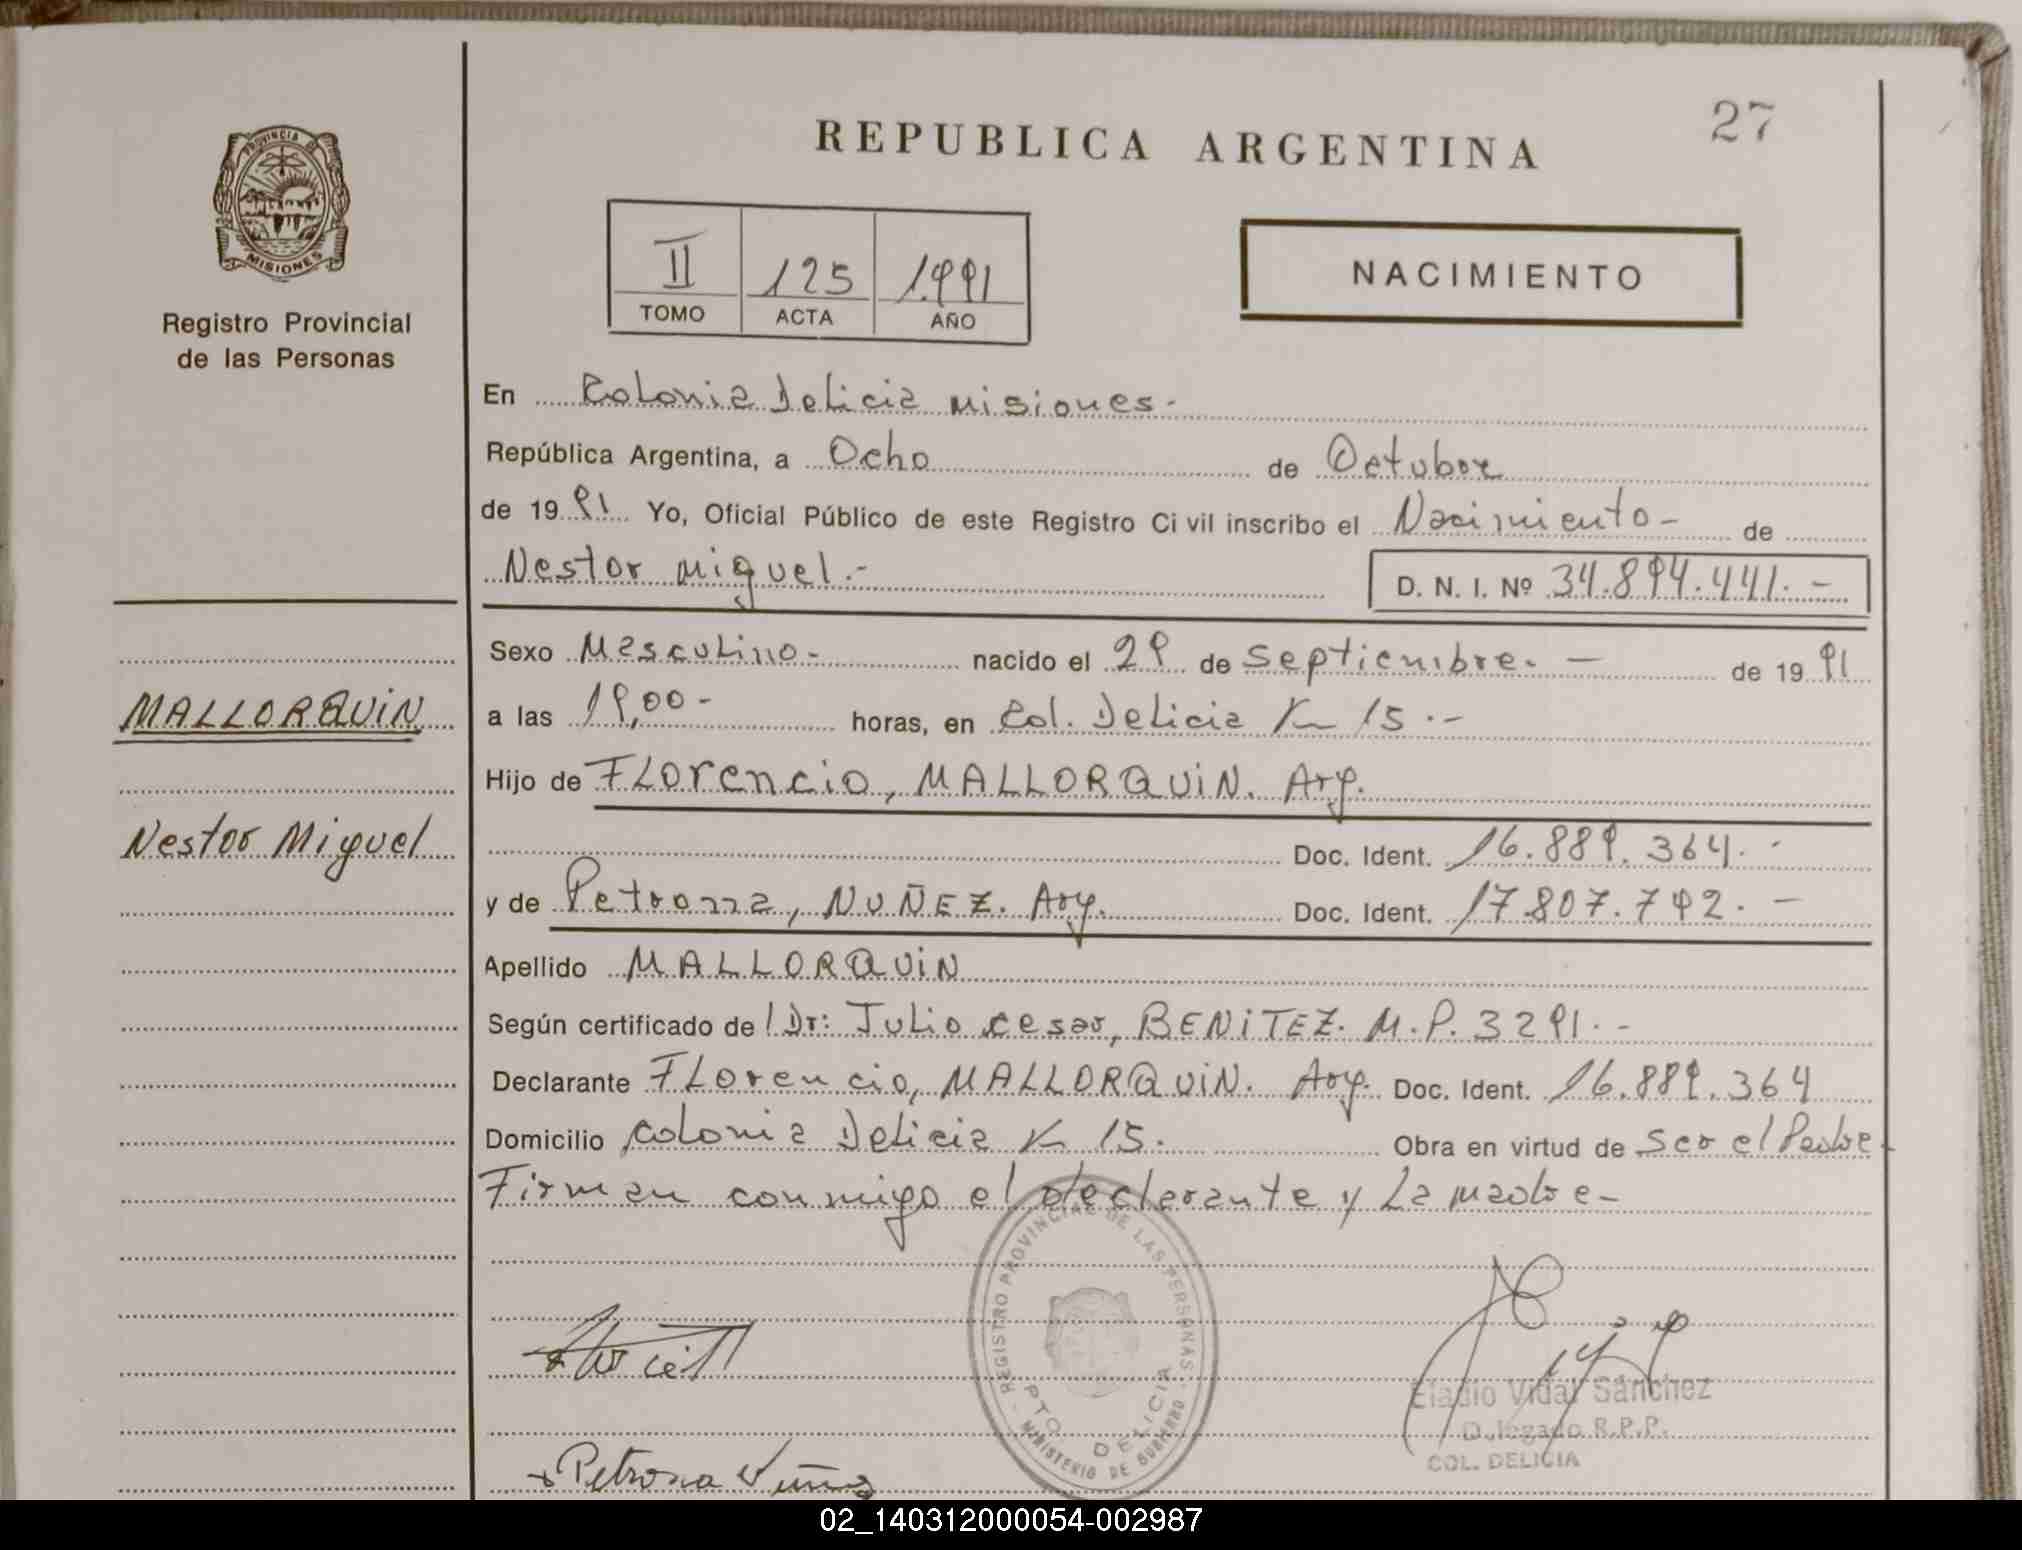 27
REPUBLICA ARGENTINA
PROVINCIA DE
MISIONES
Registro Provincial
de las Personas
II 125 1.991
TOMO ACTA AÑO
NACIMIENTO
En Colonia Delicia Misiones.-
República Argentina, a Ocho de Octubre
de 19 91 Yo, Oficial Público de este Registro Civil inscribo el Nacimiento- de
Nestor Miguel.-
D. N. I. Nº 34.894.441.-
Sexo Masculino- nacido el 29 de Septiembre.- de 19 91
MALLORQUIN
a las 19,00- horas, en Col. Delicia Km 15.-
Hijo de FLorencio, MALLORQUIN. Arg.
Nestor Miguel
Doc. Ident. 16.889.364.-
y de Petrona, NUÑEZ. Arg. Doc. Ident. 17.807.792.-
Apellido MALLORQUIN
Según certificado de l Dr: Julio cesar, BENITEZ. M.P. 3291.-
Declarante FLorencio, MALLORQUIN. Arg. Doc. Ident. 16.889.364
Domicilio colonia Delicia Km 15. Obra en virtud de Ser el Padre-
Firman conmigo el declarante y La madre-
REGISTRO PROVINCIAL DE LAS PERSONAS
PTO DELICIA
MINISTERIO DE GOBIERNO
Eladio Vidal Sánchez
Delegado R.P.P.
COL. DELICIA
Petrona Nuñez
02_140312000054-002987